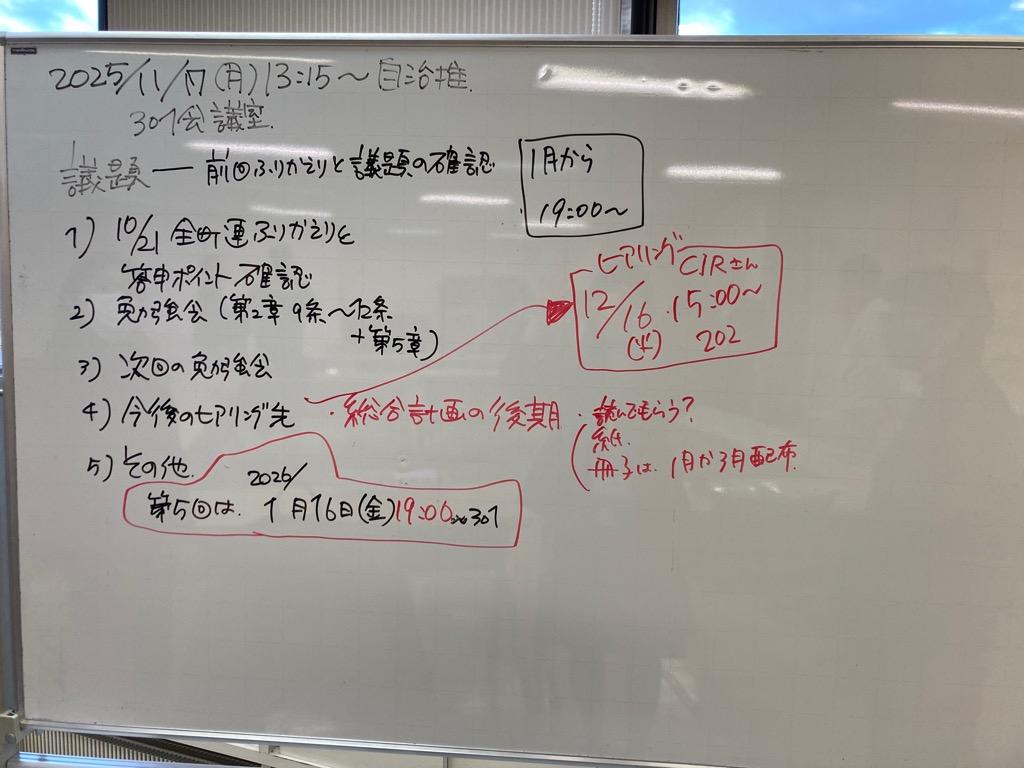 2025/11/17(月)13:15〜自治推
301会議室
議題 — 前回ふりかえりと議題の確認
1月から
19:00〜
1) 10/21 全町連ふりかえりと
答申ポイント確認
2) 勉強会(第2章9条〜12条
+第5章)
3) 次回の勉強会
4) 今後のヒアリング先
ヒアリング CIRさん
12/16 15:00〜
(火) 202
・総合計画の後期・読んでもらう?
冊子は、1月か3月配布
5) その他
2026/
第5回は、1月16日(金)19:00 301